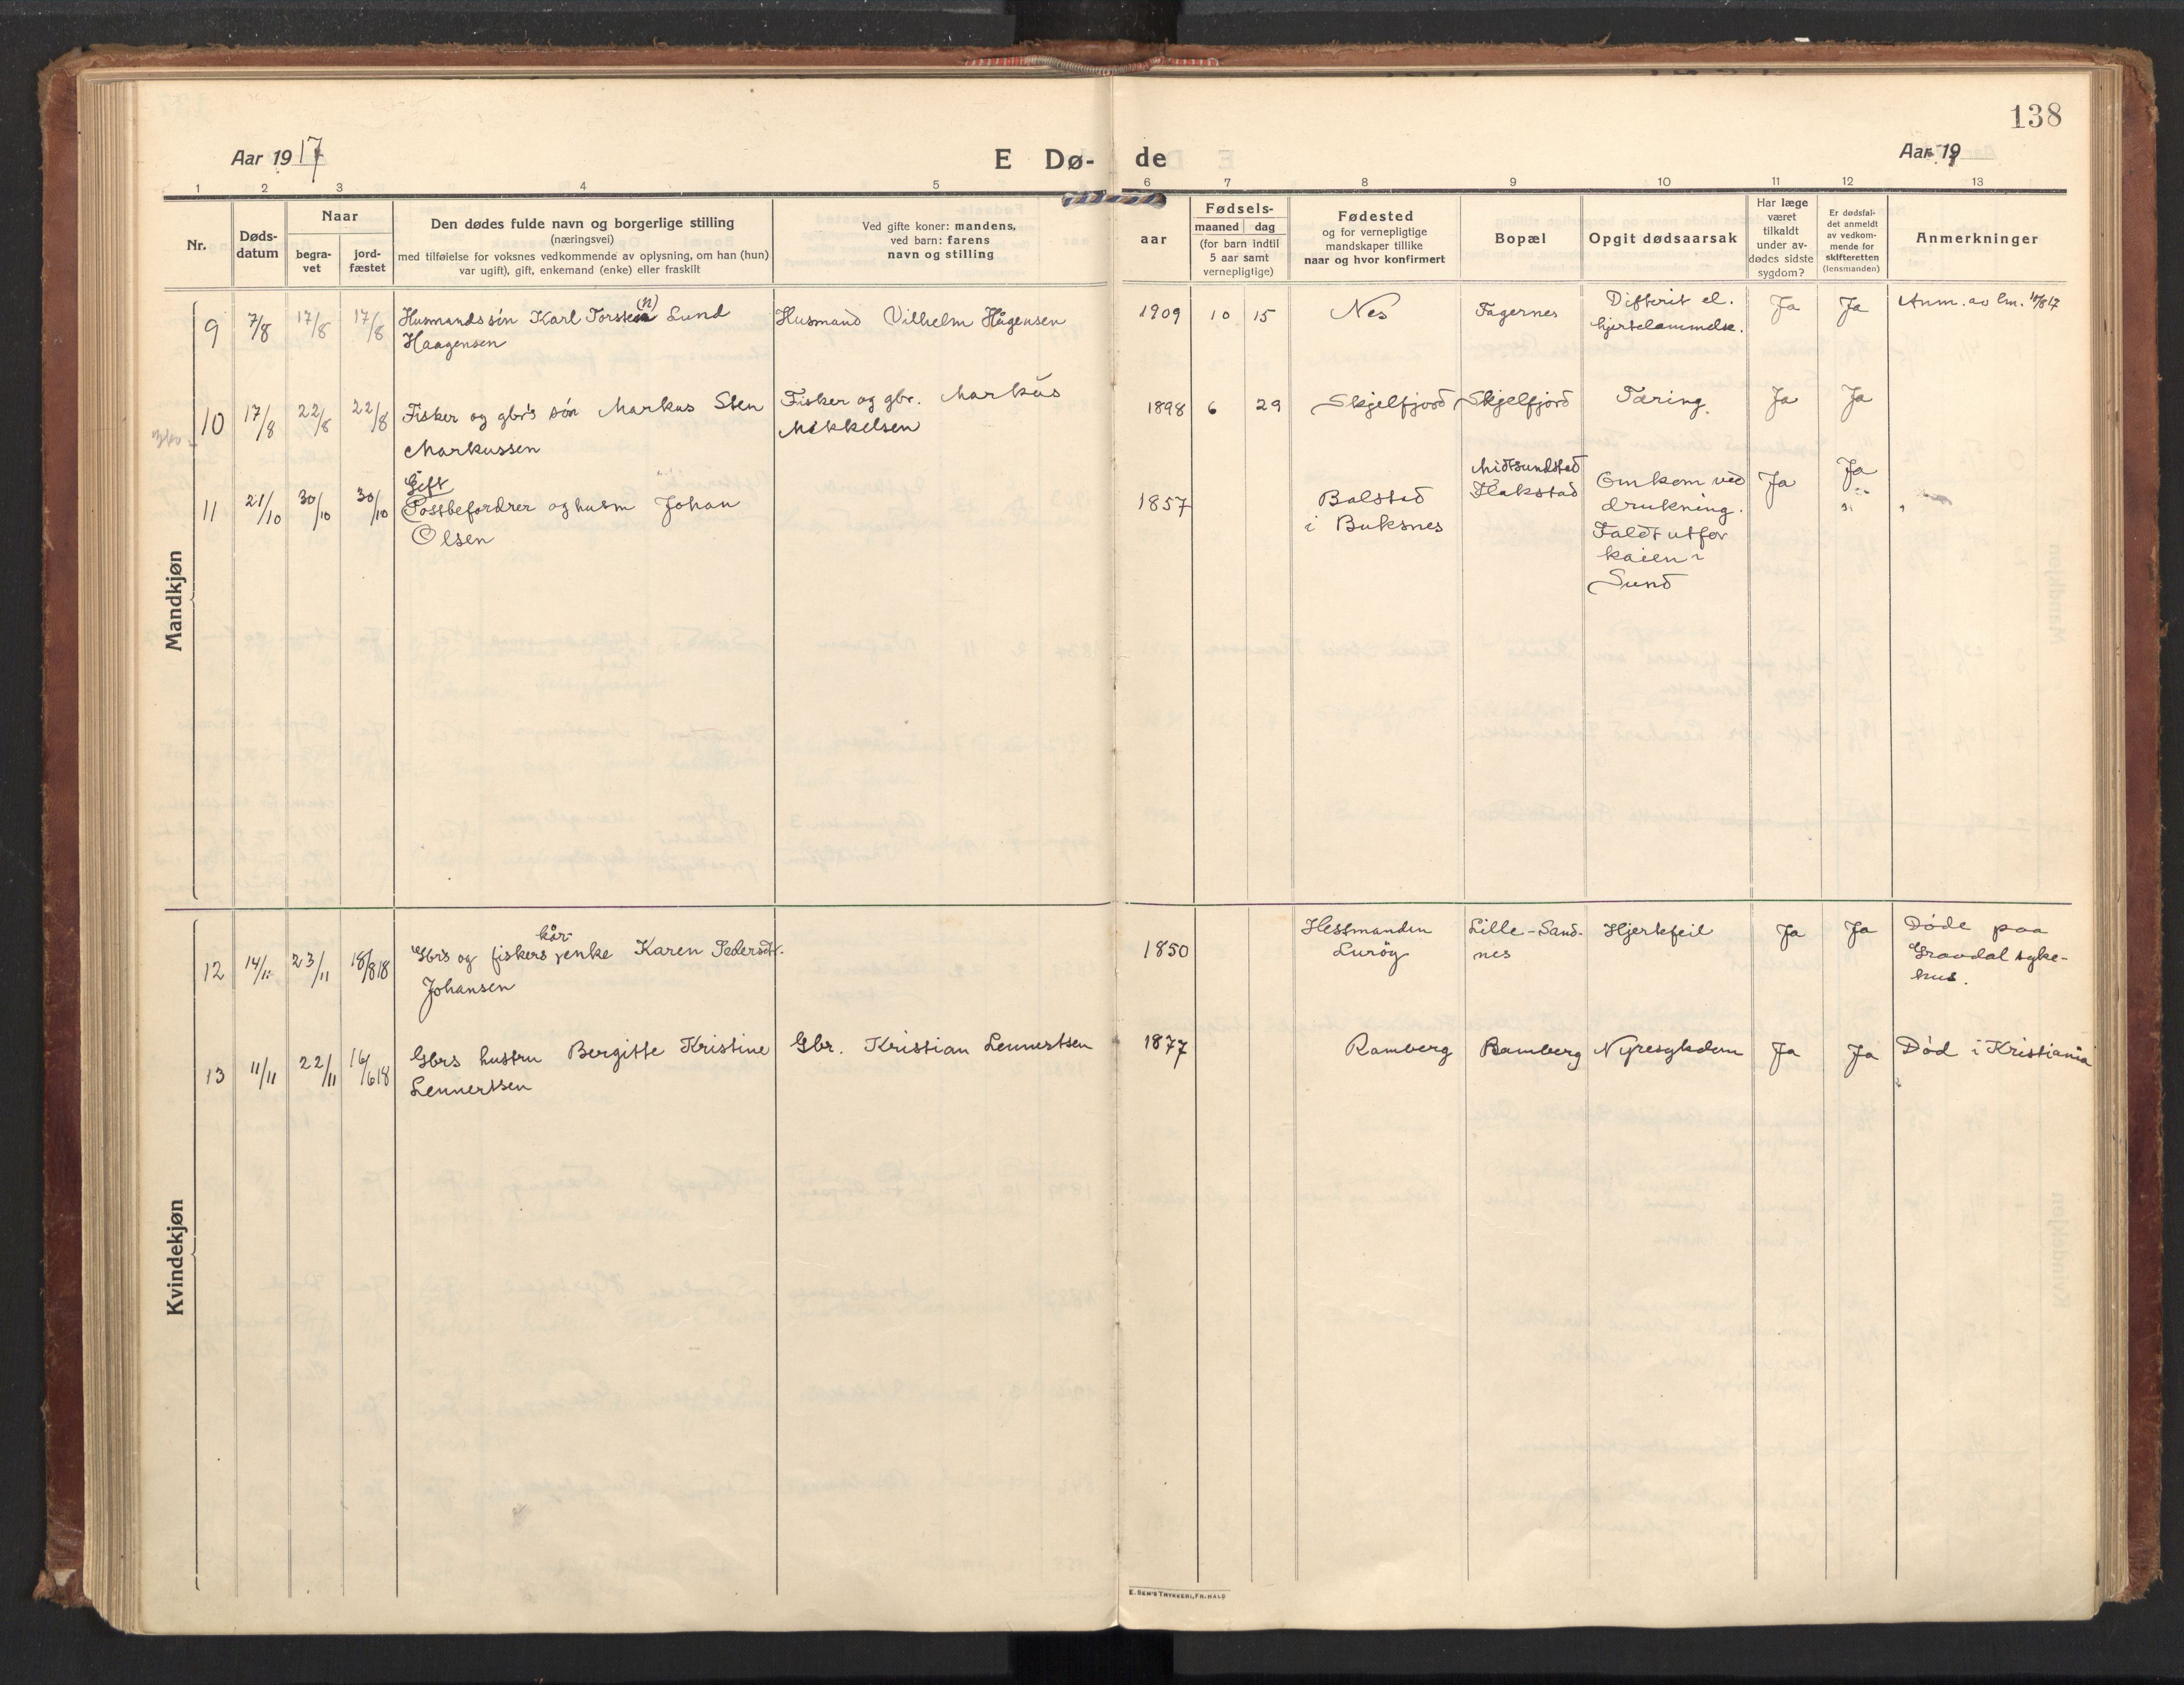 138
Aar 1917
E Dø- de
Aar 19
1 2 3 4 5 6 7 8 9 10 11 12 13
Nr.
Døds-
datum
Naar
begra-
vet
jord-
fæstet
Den dødes fulde navn og borgerlige stilling
(næringsvei)
med tilføielse for voksnes vedkommende av oplysning, om han (hun)
var ugift), gift, enkemand (enke) eller fraskilt
Ved gifte koner: mandens,
ved barn: farens
navn og stilling
Fødsels-
aar
maaned dag
(for barn indtil
5 aar samt
vernepligtige)
Fødested
og for vernepligtige
mandskaper tillike
naar og hvor konfirmert
Bopæl
Opgit dødsaarsak
Har læge
været
tilkaldt
under av-
dødes sidste
sygdom?
Er dødsfal-
det anmeldt
av vedkom-
mende for
skifteretten
(lensmanden)
Anmerkninger
Mandkjøn
9 7/8 17/8 17/8
Husmandssøn Karl Torstein (n) Lund
Haagensen
Husmand Vilhelm Hågensen
1909 10 15
Nes
Fagernes
Difterit el.
hjertelammelse.
Ja
Ja
Anm. av lm. 18/8 17
10 17/8 22/8 22/8
Fisker og gbr's søn Markus Sten
Markussen
Fisker og gbr. Markus
Mikkelsen
1898 6 29
Skjelfjord
Skjelfjord
Tæring.
Ja
Ja
11 21/10 30/10 30/10
Gift
Postbefordrer og husm Johan
Olsen
1857
Balstad
i Buksnes
Midtsundstad
Flakstad
Omkom ved
drukning.
Faldt utfor
kaien i
Sund
Ja
Ja
Kvindekjøn
12 14/11 23/11 18/8 18
kår-
Gbrs og fiskers enke Karen Pedersdt.
Johansen
1850
Hestmanden
Lurøy
Lille-Sand-
nes
Hjertefeil
Ja
Ja
Døde paa
Gravdal syke-
hus.
13 11/11 22/11 16/6 18
Gbrs hustru Bergitte Kristine
Lennertsen
Gbr. Kristian Lennertsen
1877
Ramberg
Ramberg
Nyresykdom
Ja
Ja
Død i Kristiania
E. SEM'S TRYKKERI, FR.HALD